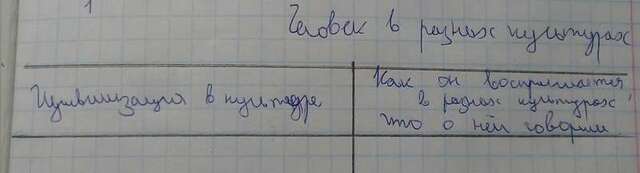 1
Человек в разных культурах
Цивилизация в культуре
Как он воспринимается
в разных культурах,
что о нём говорили